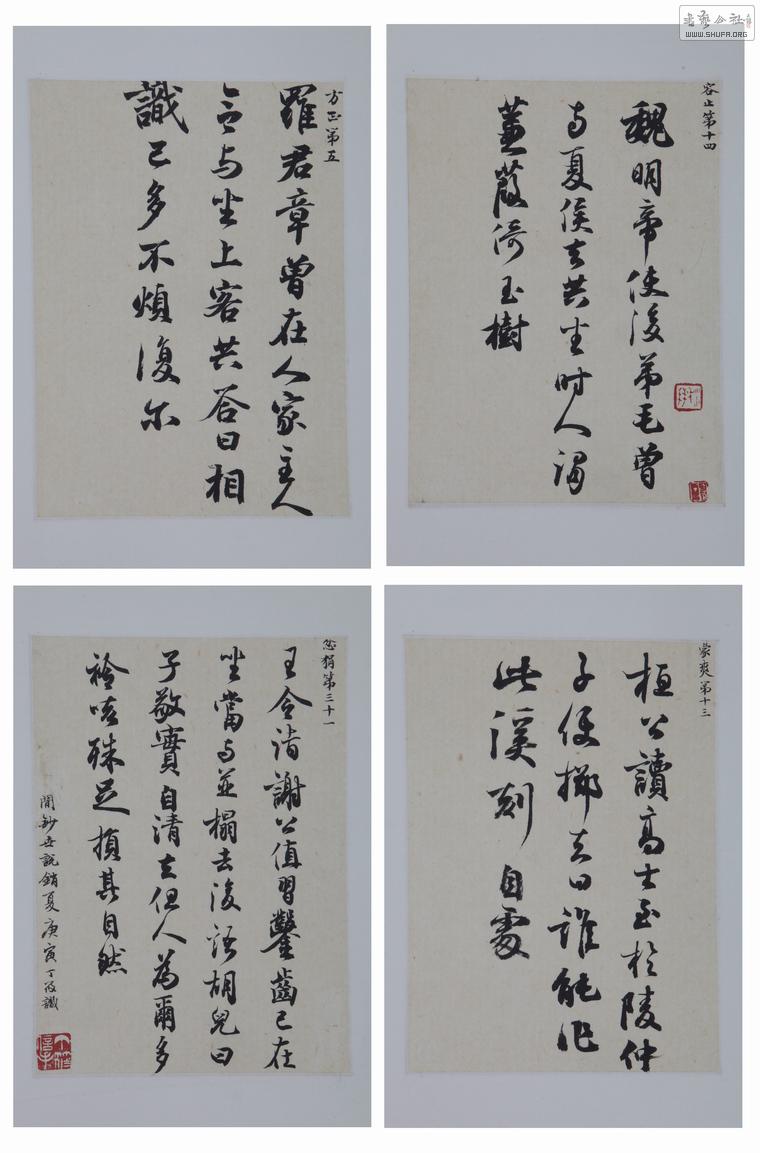 書藝公社
WWW.SHUFA.ORG
容止第十四
魏明帝使後弟毛曾
与夏侯玄共坐时人谓
蒹葭倚玉樹
方正第五
羅君章曾在人家主人
令与坐上客共答曰相
識已多不煩復尔
豪爽第十三
桓公讀高士至於陵仲
子便擲去曰誰能作
此溪刻自處
忿狷第三十一
王令詣謝公值習鑿齒已在
坐當与並榻去後語胡兒曰
子敬實自清立但人為爾多
矜咳殊足損其自然
閒鈔世說銷夏庚寅丁筱識